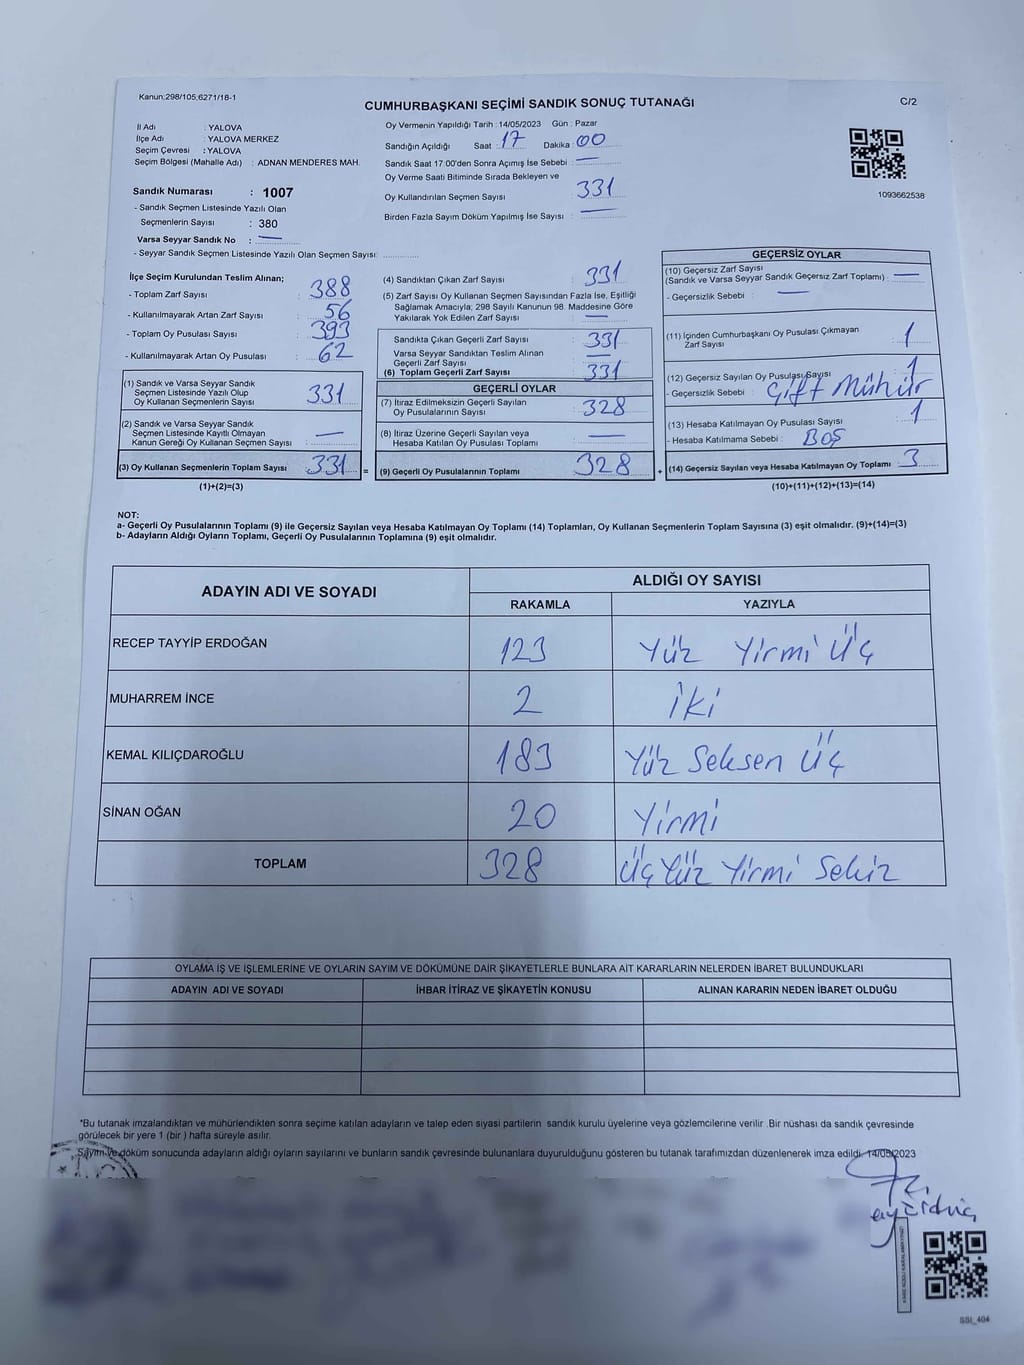 Kanun;298/105,6271/18-1
CUMHURBAŞKANI SEÇİMİ SANDIK SONUÇ TUTANAĞI
C/2
İl Adı : YALOVA
İlçe Adı : YALOVA MERKEZ
Seçim Çevresi : YALOVA
Seçim Bölgesi (Mahalle Adı) : ADNAN MENDERES MAH.
Sandık Numarası : 1007
- Sandık Seçmen Listesinde Yazılı Olan
Seçmenlerin Sayısı : 380
Varsa Seyyar Sandık No : —
- Seyyar Sandık Seçmen Listesinde Yazılı Olan Seçmen Sayısı:
Oy Vermenin Yapıldığı Tarih :14/05/2023 Gün : Pazar
Sandığın Açıldığı Saat : 17 Dakika : 00
Sandık Saat 17:00'den Sonra Açımış İse Sebebi : —
Oy Verme Saati Bitiminde Sırada Bekleyen ve
Oy Kullandırılan Seçmen Sayısı : 331
Birden Fazla Sayım Döküm Yapılmış İse Sayısı : —
1093662538
İlçe Seçim Kurulundan Teslim Alınan;
- Toplam Zarf Sayısı : 388
- Kullanılmayarak Artan Zarf Sayısı : 56
- Toplam Oy Pusulası Sayısı : 393
- Kullanılmayarak Artan Oy Pusulası : 62
(1) Sandık ve Varsa Seyyar Sandık
Seçmen Listesinde Yazılı Olup
Oy Kullanan Seçmenlerin Sayısı : 331
(2) Sandık ve Varsa Seyyar Sandık
Seçmen Listesinde Kayıtlı Olmayan
Kanun Gereği Oy Kullanan Seçmen Sayısı : —
(3) Oy Kullanan Seçmenlerin Toplam Sayısı : 331 =
(1)+(2)=(3)
(4) Sandıktan Çıkan Zarf Sayısı : 331
(5) Zarf Sayısı Oy Kullanan Seçmen Sayısından Fazla İse, Eşitliği
Sağlamak Amacıyla; 298 Sayılı Kanunun 98. Maddesine Göre
Yakılarak Yok Edilen Zarf Sayısı : —
Sandıkta Çıkan Geçerli Zarf Sayısı : 331
Varsa Seyyar Sandıktan Teslim Alınan
Geçerli Zarf Sayısı : —
(6) Toplam Geçerli Zarf Sayısı : 331
GEÇERLİ OYLAR
(7) İtiraz Edilmeksizin Geçerli Sayılan
Oy Pusulalarının Sayısı : 328
(8) İtiraz Üzerine Geçerli Sayılan veya
Hesaba Katılan Oy Pusulası Toplamı : —
(9) Geçerli Oy Pusulalarının Toplamı : 328 +
GEÇERSİZ OYLAR
(10) Geçersiz Zarf Sayısı
(Sandık ve Varsa Seyyar Sandık Geçersiz Zarf Toplamı) : —
- Geçersizlik Sebebi : —
(11) İçinden Cumhurbaşkanı Oy Pusulası Çıkmayan
Zarf Sayısı : 1
(12) Geçersiz Sayılan Oy Pusulası Sayısı : 1
- Geçersizlik Sebebi : Çift Mühür
(13) Hesaba Katılmayan Oy Pusulası Sayısı : 1
- Hesaba Katılmama Sebebi : BOŞ
(14) Geçersiz Sayılan veya Hesaba Katılmayan Oy Toplamı : 3
(10)+(11)+(12)+(13)=(14)
NOT:
a- Geçerli Oy Pusulalarının Toplamı (9) ile Geçersiz Sayılan veya Hesaba Katılmayan Oy Toplamı (14) Toplamları, Oy Kullanan Seçmenlerin Toplam Sayısına (3) eşit olmalıdır. (9)+(14)=(3)
b- Adayların Aldığı Oyların Toplamı, Geçerli Oy Pusulalarının Toplamına (9) eşit olmalıdır.
ADAYIN ADI VE SOYADI
ALDIĞI OY SAYISI
RAKAMLA YAZIYLA
RECEP TAYYİP ERDOĞAN 123 Yüz Yirmi Üç
MUHARREM İNCE 2 iki
KEMAL KILIÇDAROĞLU 183 Yüz Seksen Üç
SİNAN OĞAN 20 Yirmi
TOPLAM 328 Üç Yüz Yirmi Sekiz
OYLAMA İŞ VE İŞLEMLERİNE VE OYLARIN SAYIM VE DÖKÜMÜNE DAİR ŞİKAYETLERLE BUNLARA AİT KARARLARIN NELERDEN İBARET BULUNDUKLARI
ADAYIN ADI VE SOYADI İHBAR İTİRAZ VE ŞİKAYETİN KONUSU ALINAN KARARIN NEDEN İBARET OLDUĞU
*Bu tutanak imzalandıktan ve mühürlendikten sonra seçime katılan adayların ve talep eden siyasi partilerin sandık kurulu üyelerine veya gözlemcilerine verilir. Bir nüshası da sandık çevresinde
görülecek bir yere 1 (bir ) hafta süreyle asılır.
Sayım ve döküm sonucunda adayların aldığı oyların sayılarını ve bunların sandık çevresinde bulunanlara duyurulduğunu gösteren bu tutanak tarafımızdan düzenlenerek imza edildi. 14/05/2023
SSI_404